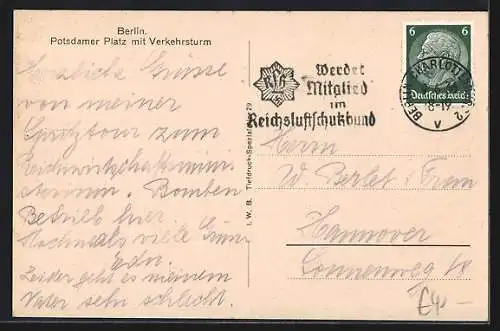 Berlin.
Potsdamer Platz mit Verkehrsturm
Herzliche Grüsse
von meiner
Spritztour zum
Reichswirtschaftsmini-
sterium. Bomben
Betrieb hier.
Nochmals viele Grüsse
Edn.
Leider geht es meinem
Vater sehr schlecht.
I. W. B. Tiefdruck-Spezial 29
RLB
Werdet
Mitglied
im
Reichsluftschutzbund
6 6
Deutsches Reich
BERLIN-CHARLOTTENBURG 2
V
Herrn
W. Berlet u. Frau
Hannover
Sonnenweg